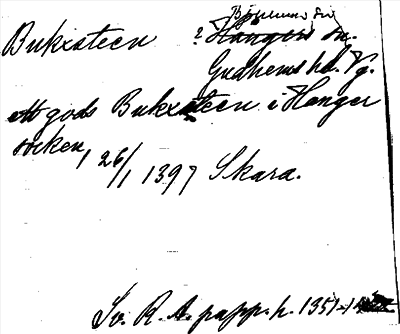 Brismene sn
Bukxsteen ? Hångers sn.
Gudhems hd. Vg.
ett gods Bukxsteen i Hanger
socken, 26/1 1397 Skara.
Sv. R. A. papp. h. 1351-